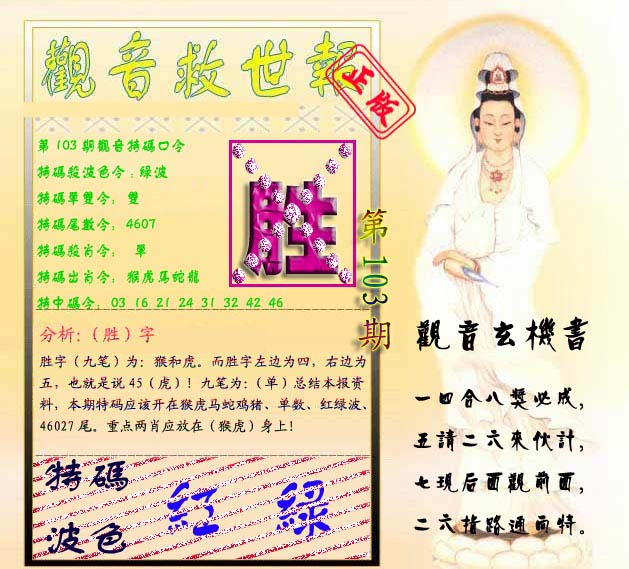 觀音救世報
正版
第103期觀音特碼口令
特碼殺波色令:綠波
特碼單雙令: 雙
特碼尾數令: 4607
特碼殺肖令: 單
特碼出肖令: 猴虎馬蛇龍
特中碼令: 03 16 21 24 31 32 42 46
胜
第103期
分析:(胜)字
胜字(九笔)为:猴和虎。而胜字左边为四,右边为
五,也就是说45(虎)!九笔为:(单)总结本报资
料,本期特码应该开在猴虎马蛇鸡猪、单数、红绿波、
46027尾。重点两肖应放在(猴虎)身上!
特碼
波色
紅 綠
觀音玄機書
一四合八獎必成,
五請二六來伙計,
七現后面觀前面,
二六指路通而特。